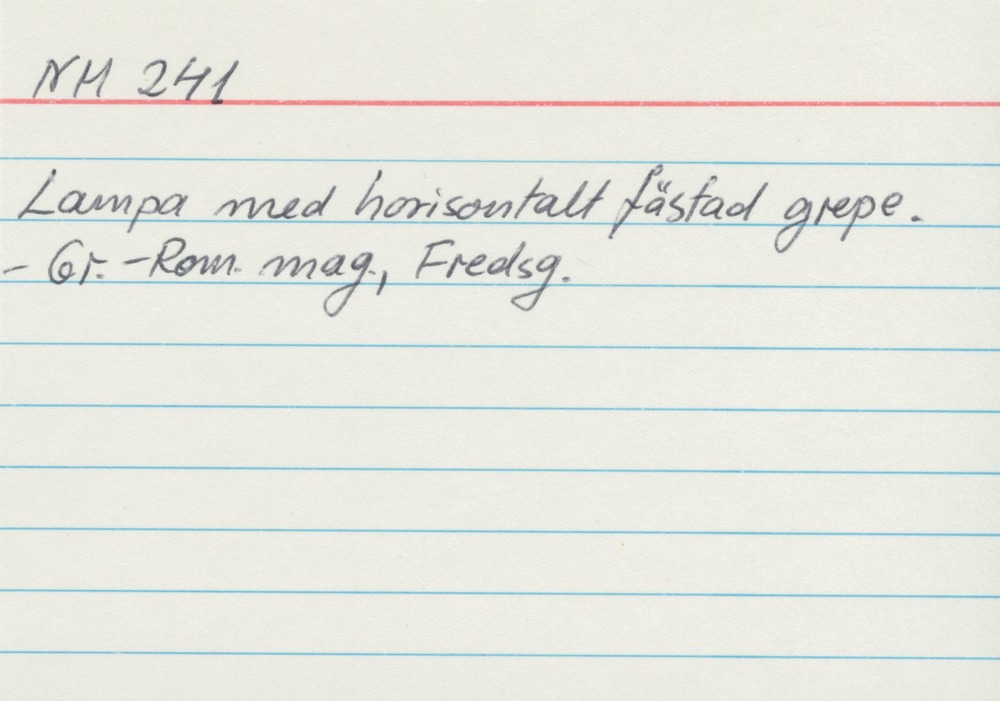 NM 241
Lampa med horisontalt fästad grepe.
- Gr.-Rom. mag., Fredsg.